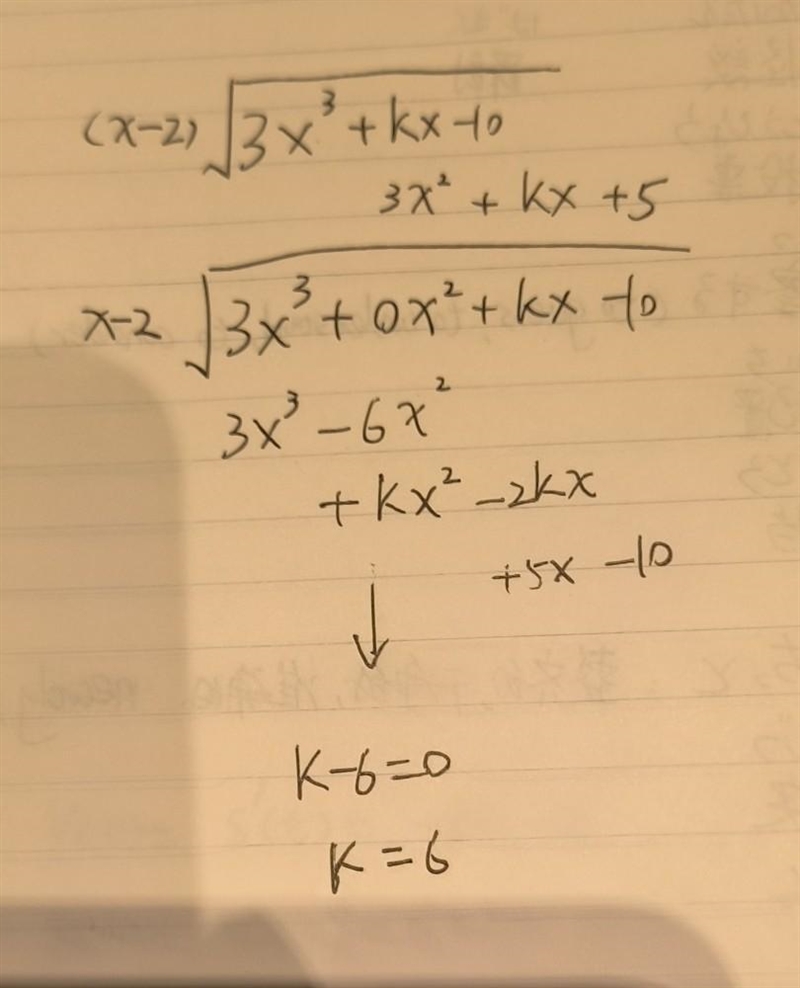 (x-2)√3x³+kx-10
3x²+kx+5
x-2√3x³+0x²+kx-10
3x³-6x²
+kx²-2kx
+5x-10
↓
k-6=0
k=6